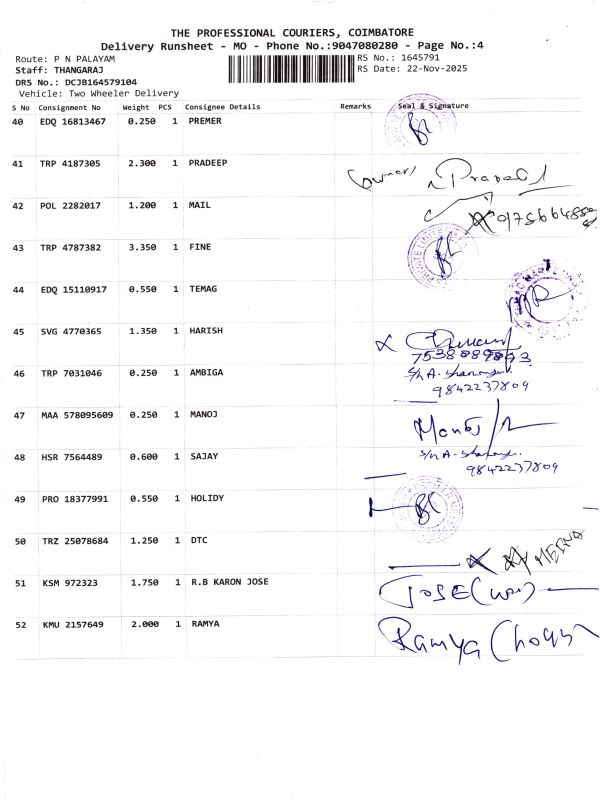 THE PROFESSIONAL COURIERS, COIMBATORE
Delivery Runsheet - MO - Phone No.:9047080280 - Page No.:4
Route: P N PALAYAM
RS No.: 1645791
Staff: THANGARAJ
RS Date: 22-Nov-2025
DRS No.: DCJB164579104
Vehicle: Two Wheeler Delivery
S No Consignment No Weight PCS Consignee Details Remarks Seal & Signature
40 EDQ 16813467 0.250 1 PREMER
41 TRP 4187305 2.300 1 PRADEEP
(owner)
42 POL 2282017 1.200 1 MAIL
43 TRP 4787382 3.350 1 FINE
44 EDQ 15110917 0.550 1 TEMAG
45 SVG 4770365 1.350 1 HARISH
46 TRP 7031046 0.250 1 AMBIGA
9842237809
47 MAA 578095609 0.250 1 MANOJ
Manoj
48 HSR 7564489 0.600 1 SAJAY
9842237809
49 PRO 18377991 0.550 1 HOLIDY
50 TRZ 25078684 1.250 1 DTC
51 KSM 972323 1.750 1 R.B KARON JOSE
JOSE
52 KMU 2157649 2.000 1 RAMYA
Ramya